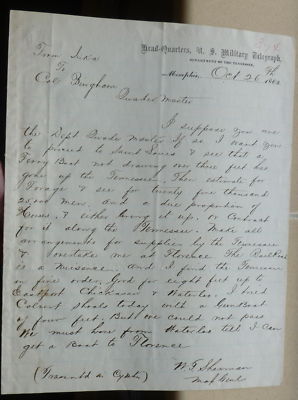 Head-Quarters, U. S. Military Telegraph,
DEPARTMENT OF THE TENNESSEE,
Memphis, Oct 26th 1863
From Iuka
To
Col Bingham
Quader Master
I suppose you are
the Dept Quader Master, if so I want you
to proceed to Saint Louis & see that a
Ferry Boat not drawing over three feet has
gone up the Tennessee. Then estimate for
Forage & see for twenty five thousand
25,000 men. And a due proportion of
Horses, & either bring it up. or Contract
for it along the Tennessee. Make all
arrangements for supplies by the Tennessee
& overtake me at Florence The Rail Road
is a nuisance. And I find the Tennessee
in fine order. Good for eight feet up to
Eastport Chickasaw & Waterloo. I tried
Colbert shoals today with a GunBoat
of four feet, But we could not pass
We must have from Waterloo till I can
get a Boat to Florence
W. T. Sherman
Maj Genl
(Transmitted in Cypher)